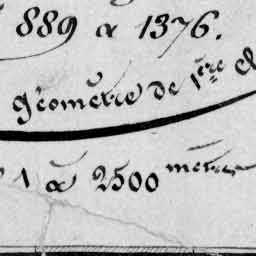 889 a 1376.
géomètre de 1ère cl
1 à 2500 mètres